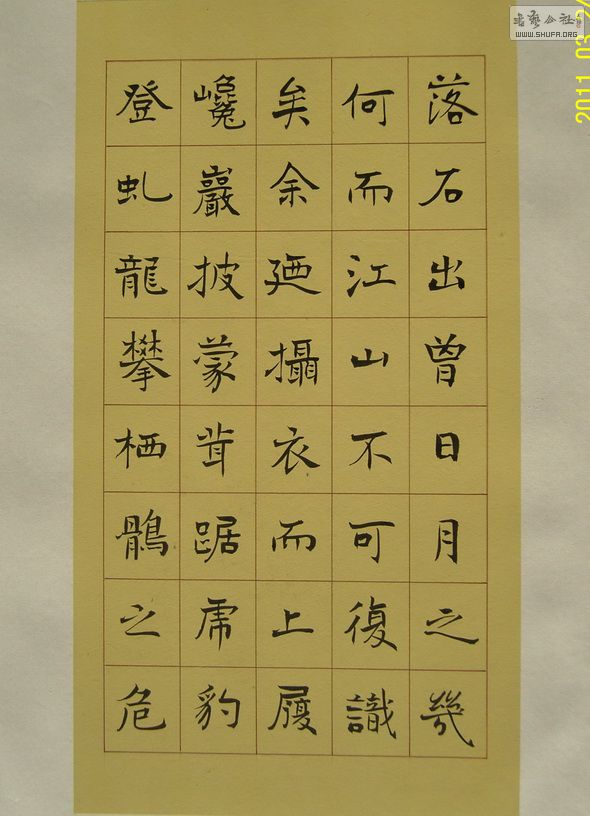 落石出曾日月之幾
何而江山不可復識
矣余廼攝衣而上履
巉巖披蒙茸踞虎豹
登虬龍攀栖鶻之危
書藝公社
WWW.SHUFA.ORG
2011 03 24